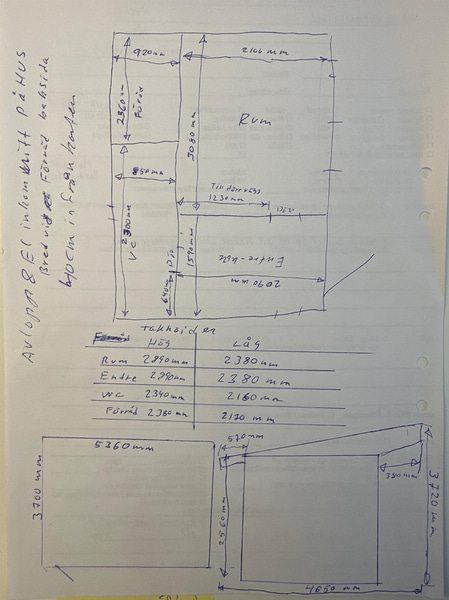 Avlopp & El inkommit på HUS
Bredvid Förråd baksida
40cm in från kanten
920mm
2166 mm
2360mm
Förråd
3080mm
Rum
850mm
1230mm
2300mm
VC
1590mm
Entre-
2090mm
640mm
Takhöjder
Hög
Låg
Rum 2890mm 2380mm
Entre 2890mm 2380 mm
WC 2340mm 2160mm
Förråd 2380mm 2170 mm
5360mm
3700 mm
570mm
380mm
2560mm
3720mm
4650 mm